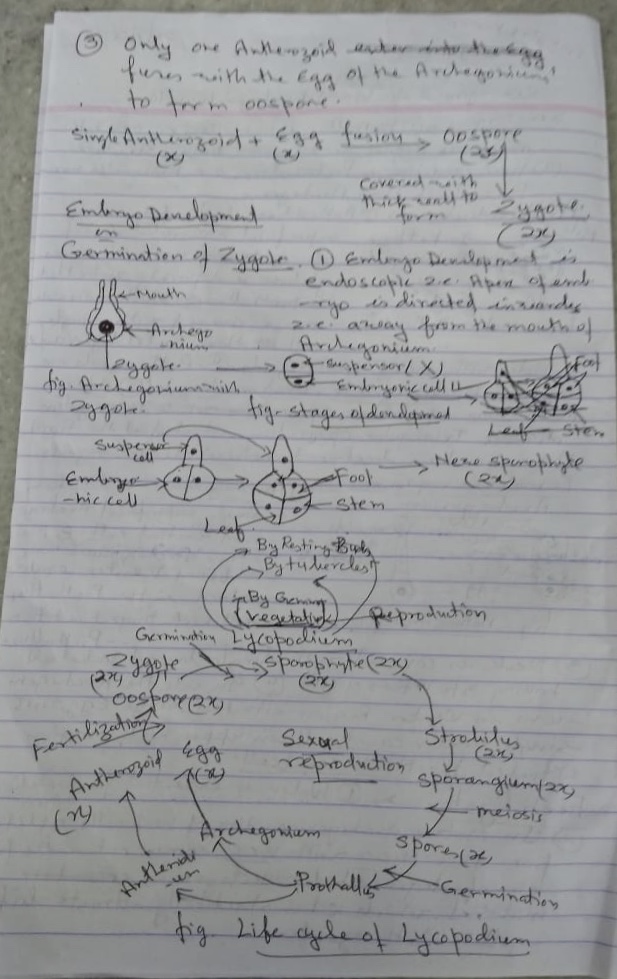 ③ Only one Antherozoid enter into the Egg
fuses with the Egg of the Archegonium
to form oospore.
Single Antherozoid + Egg fusion → Oospore
(x) (x) (2x)
Covered with
thick wall to
form
Zygote.
(2x)
Embryo Development
or
Germination of Zygote.
① Embryo Development is
endoscopic i.e. Apex of emb
-ryo is directed inwards
i.e. away from the mouth of
Archegonium
Mouth
Archego
-nium
Zygote.
fig. Archegonium with
Zygote.
Suspensor (X)
Embryonic cell
fig. Stages of
Foot
Leaf
Stem
Suspensor
cell
Embryo
-nic cell
Foot
Stem
Leaf
→ New sporophyte
(2x)
By Resting Buds
By tubercles
By Gemma
Vegetative
Reproduction
Germination
Lycopodium
Zygote
(2x)
Sporophyte (2x)
(2x)
Oospore (2x)
Fertilization
Strobilus
(2x)
Egg
(x)
Sexual
reproduction
Antherozoid
(x)
Sporangium (2x)
meiosis
Archegonium
Spores (x)
Antherid
-ium
Prothallus
Germination
fig. Life cycle of Lycopodium